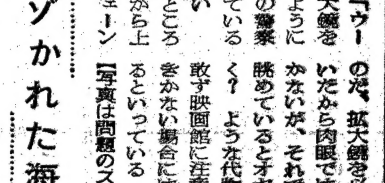 のだ、拡大鏡を
いだから肉眼で
かないが、それ
眺めているとオ
く? ような代物
敢ず映画館に注意
きかない場合には
るといっている
【写真は問題のス
「ウー
大鏡を
ように
の警察
ている
い
ところ
から上
ェーン
ゾかれた海